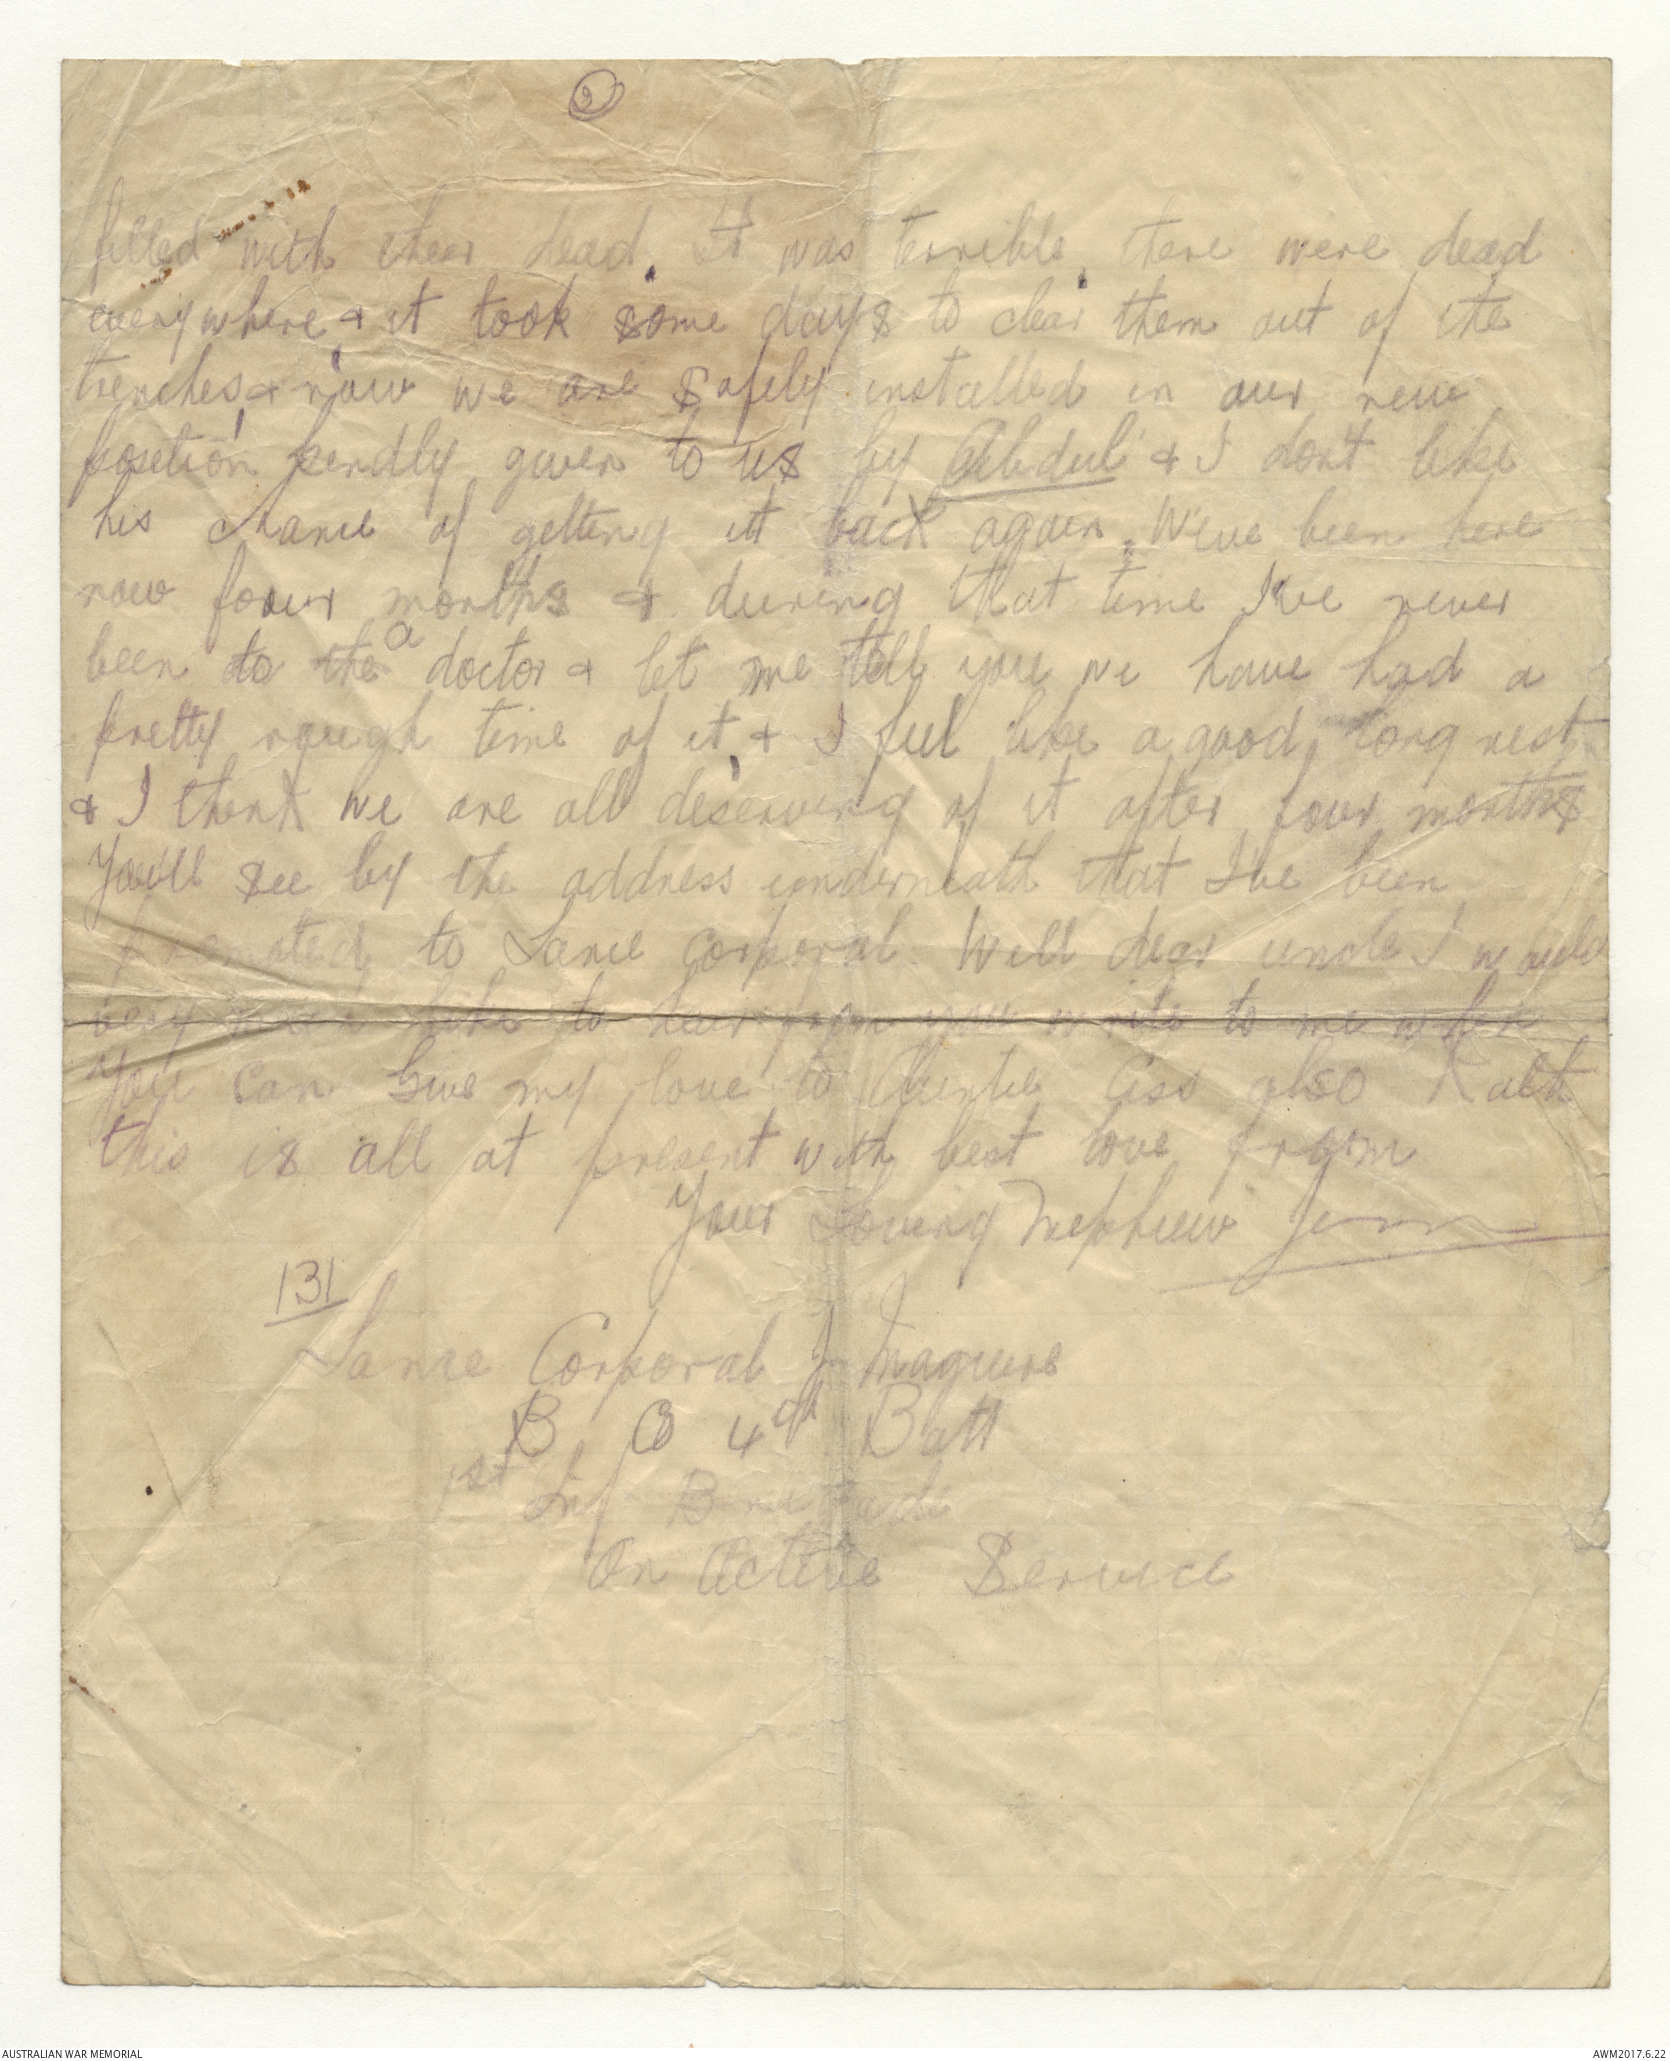 2
filled with their dead. It was terrible, there were dead
everywhere, & it took some days to clear them out of the
trenches, & now we are safely installed in our new
position kindly given to us by Abdul & I don't like
his chance of getting it back again. We've been here
now four months & during that time I've never
been to the a doctor & let me tell you we have had a
pretty rough time of it, & I feel like a good, long rest
& I think we are all deserving of it after four months
You'll see by the address underneath that I've been
promoted to Lance Corporal. Well dear uncle I would
very much like to hear from you write to me when
you can Give my love to Auntie Ciss also Kath
this is all at present with best love from
Your Loving Nephew Jim
131
Lance Corporal J Maguire
B Co 4th Batt
1st Inf Brigade
On Active Service
AUSTRALIAN WAR MEMORIAL
AWM2017.6.22